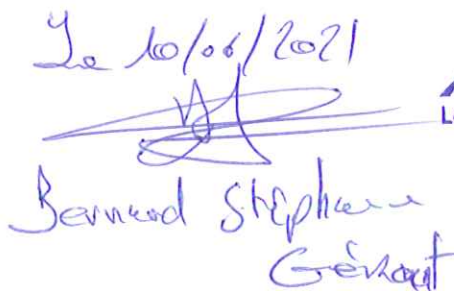 Le 10/06/2021
Bernard Stéphane
Gérant